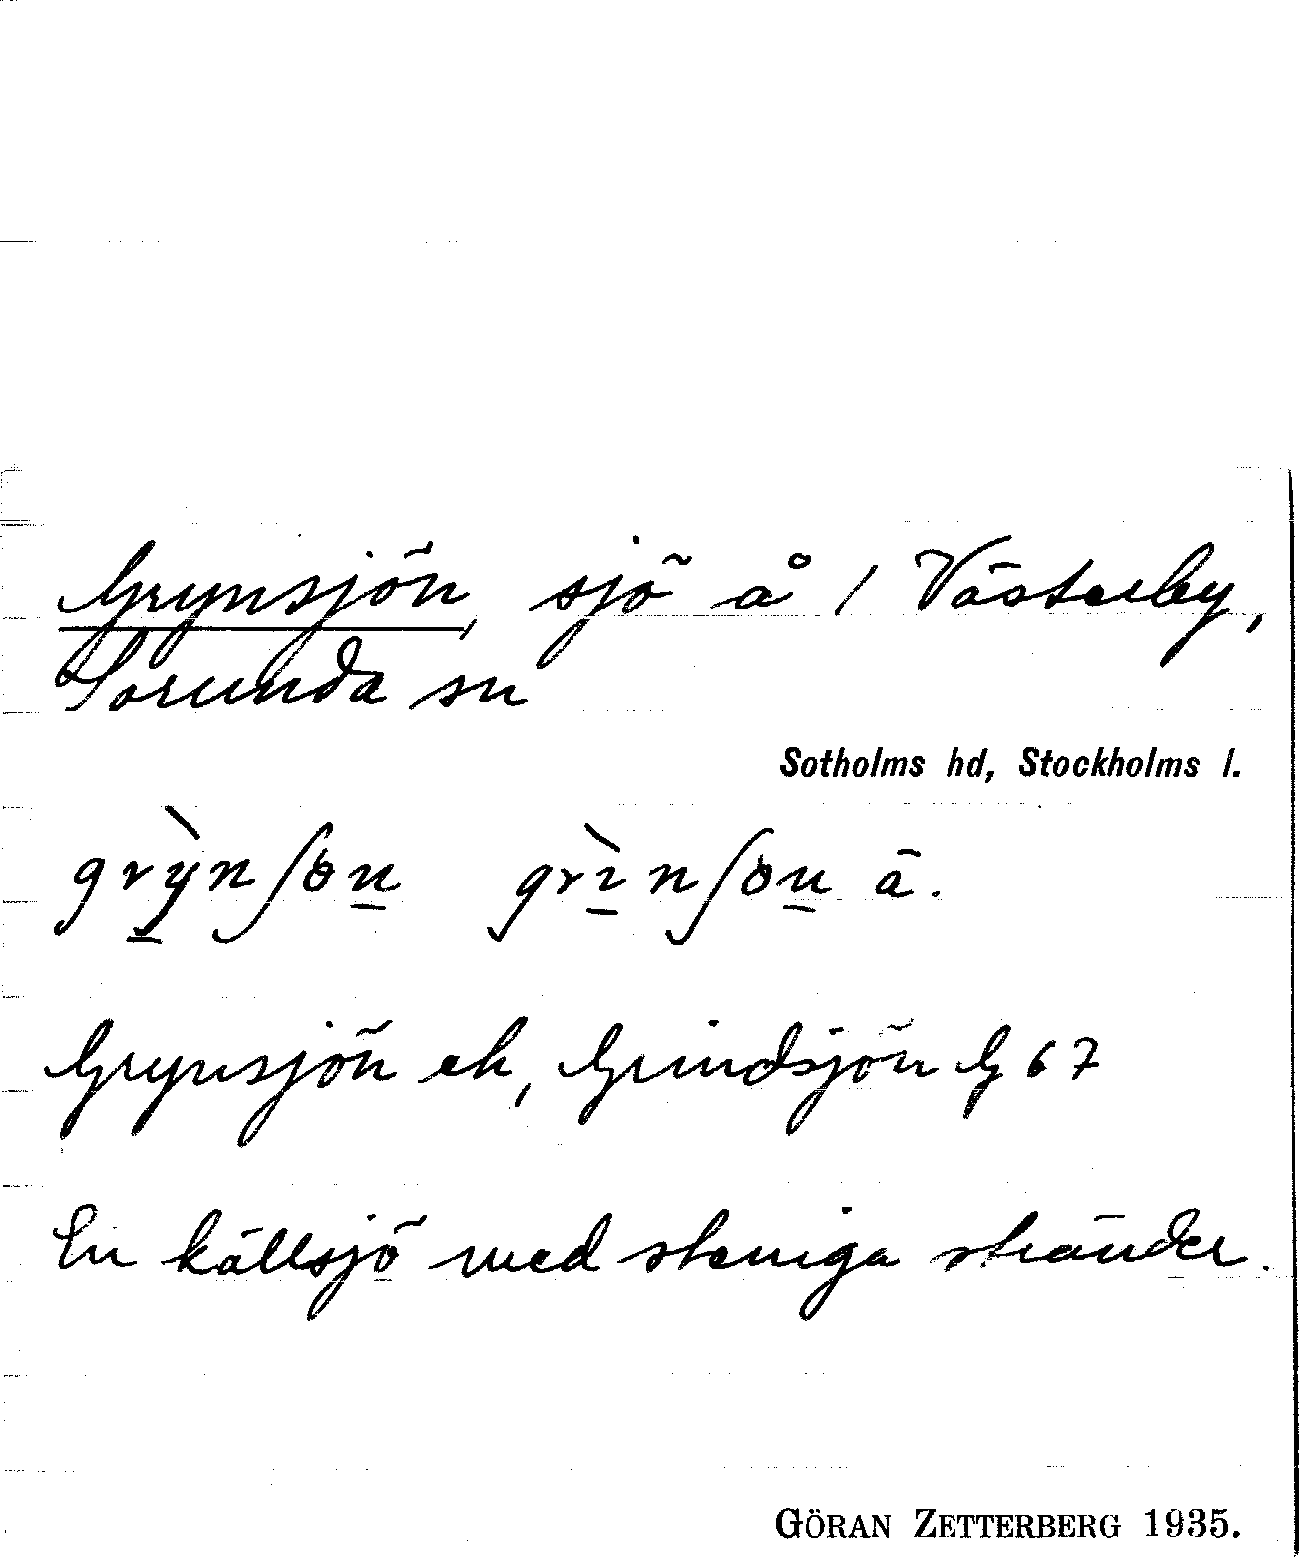 Grynsjön, sjö å 1 Västerby,
Sorunda sn
Sotholms hd, Stockholms l.
grỳ̠nʃön̠ grɩ̠̀nʃön̠ ā.
Grynsjön ek, Grindsjön G 67
En källsjö med steniga stränder.
GÖRAN ZETTERBERG 1935.